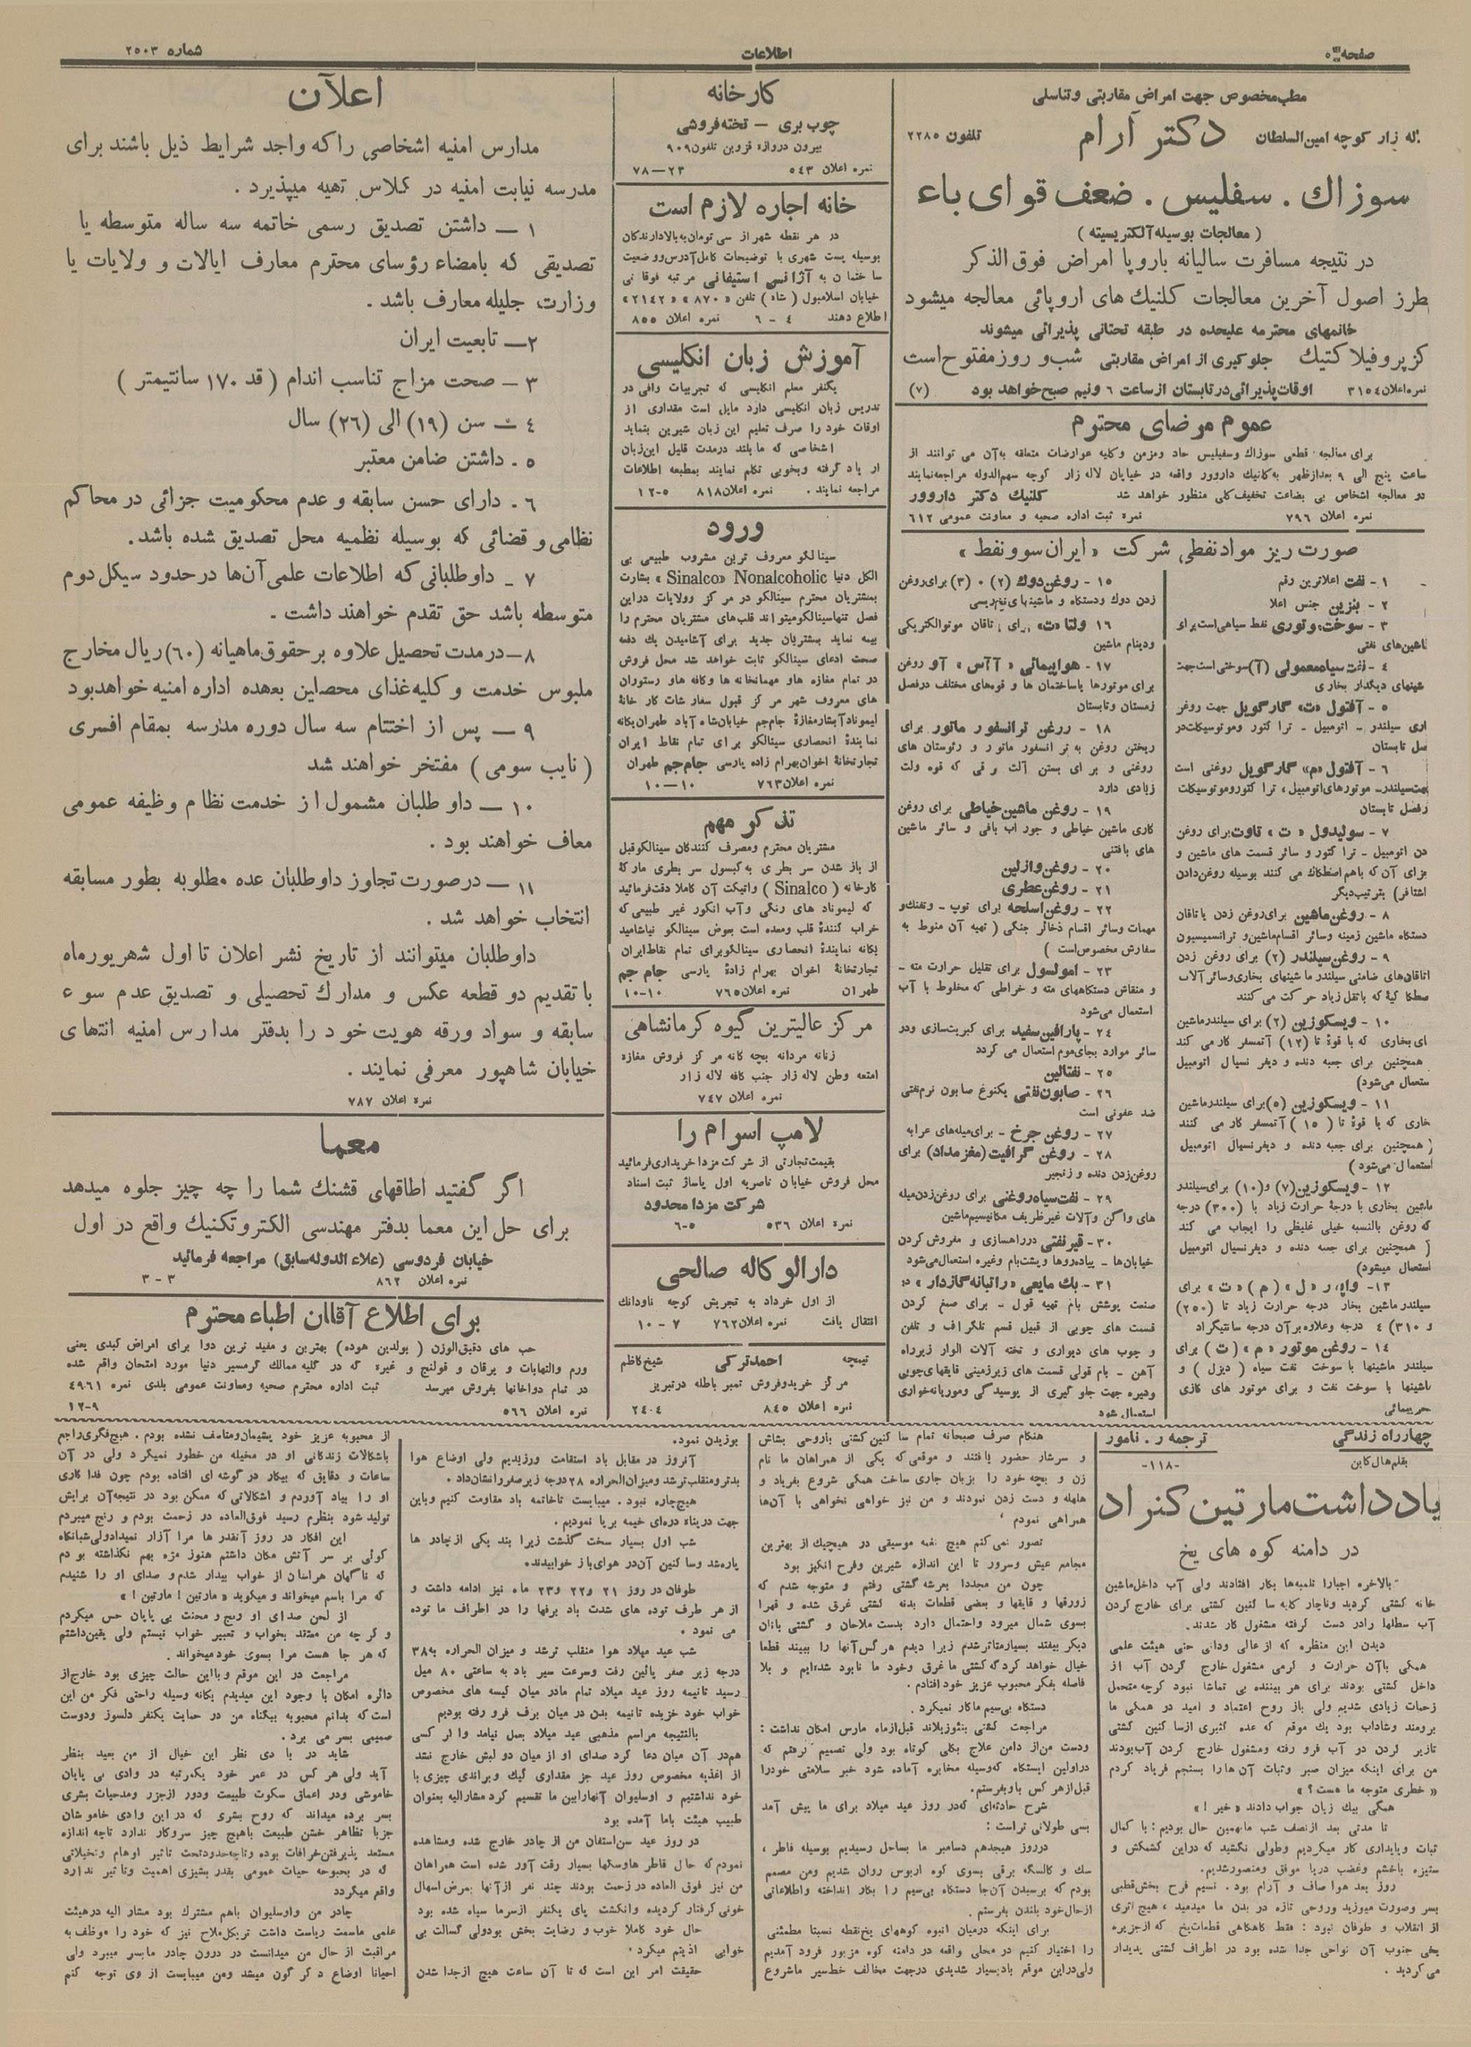 صفحه ٥
اطلاعات
شماره ٢٥٠٣
مطب مخصوص جهت امراض مقاربتی و تناسلی
لاله زار کوچه امین السلطان
دکتر آرام
تلفون ٢٢٨٥
سوزاك . سفلیس . ضعف قوای باء
( معالجات بوسیله آلکتریسیته )
در نتیجه مسافرت سالیانه باروپا امراض فوق الذکر
طرز اصول آخرین معالجات کلنیك های اروپائی معالجه میشود
خانمهای محترمه علیحده در طبقه تحتانی پذیرائی میشوند
کز پروفیلاکتیك جلوگیری از امراض مقاربتی شب و روز مفتوح است
نمره اعلان ٣١٥٤ اوقات پذیرائی در تابستان از ساعت ٦ ونیم صبح خواهد بود (٧)
عموم مرضای محترم
برای معالجه قطعی سوزاك وسفیلیس حاد ومزمن وکلیه عوارضات متعلقه به آن می توانند از
ساعت پنج الی ٩ بعدازظهر به کلنیك داروور واقعه در خیابان لاله زار کوچه سهم الدوله مراجعه نمایند
در معالجه اشخاص بی بضاعت تخفیف کلی منظور خواهد شد کلنیك دکتر داروور
نمره اعلان ٧٩٦ نمره ثبت اداره صحیه و معاونت عمومی ٦١٢
صورت ریز مواد نفطی شرکت « ایران سوو نفط »
١ - نفت اعلاترین رقم
٢ - بنزین جنس اعلا
٣ - سوخت موتوری نفط سیاهی است برای
ماشین های نفتی
٤ - نفت سیاه معمولی (آ) سوختی است جهت
ماشینهای دیگدار بخاری
٥ - آفتول «ت» گارگویل جهت روغن
کاری سیلندر - اتومبیل - تراکتور وموتوسیکلت در
فصل تابستان
٦ - آفتول «م» گارگویل روغنی است
جهت سیلندر - موتورهای اتومبیل ، تراکتور وموتوسیکلت
در فصل تابستان
٧ - سولیدول « ت » تاوت برای روغن
زدن اتومبیل - تراکتور و سائر قسمت های ماشین و
اجزای آن که باهم اصطکاك می کنند بوسیله روغن دادن
( اشتافر) بترتیب دیگر
٨ - روغن ماشین برای روغن زدن یاتاقان
دستگاه ماشین زمینه وسائر اقسام ماشین و ترانسمیسیون
٩ - روغن سیلندر (٢) برای روغن زدن
اتاقان های ضامنی سیلندر ماشینهای بخاری وسائر آلات
اصطکاکیۀ که با ثقل زیاد حرکت می کنند
١٠ - ویسکوزین (٢) برای سیلندر ماشین
های بخاری که با قوۀ تا (١٢) آتمسفر کار می کند
( همچنین برای جعبه دنده و دیفرنسیال اتومبیل
استعمال می شود)
١١ - ویسکوزین (٥) برای سیلندر ماشین
بخاری که با قوۀ تا ( ١٥ ) آتمسفر کار می کنند
( همچنین برای جعبه دنده و دیفرنسیال اتومبیل
استعمال می شود )
١٢ - ویسکوزین (٧) و (١٠) برای سیلندر
ماشین بخاری با درجۀ حرارت زیاد با (٣٠٠) درجه
که روغن بالنسبه خیلی غلیظی را ایجاب می کند
( همچنین برای جعبه دنده و دیفرنسیال اتومبیل
استعمال میشود)
١٣ - واپر « ل » ( م ) « ت » برای
سیلندر ماشین بخار درجه حرارت زیاد تا (٢٥٠)
و ٣١٠) ٤ درجه وعلاوه بر آن درجه سانتیگراد
١٤ - روغن موتور « م » ( ت ) برای
سیلندر ماشینها با سوخت نفت سیاه ( دیزل ) و
ماشینها با سوخت نفت و برای موتور های گازی
١٥ - روغن دوك (٢) ٠ (٣) برای روغن
زدن دوك ودستگاه و ماشینهای نخ ریسی
١٦ ولتا «ت» برای یاتاقان موتو الکتریکی
ودینام ماشین
١٧ - هواپیمائی «آآس» آو روغن
برای موتورها یاساختمان ها و قوه های مختلف در فصل
زمستان وتابستان
١٨ - روغن ترانسفور ماتور برای
ریختن روغن به ترانسفور ماتور و رئوستان های
روغنی و برای بستن آلت برقی که قوه ولت
زیادی دارد
١٩ - روغن ماشین خیاطی برای روغن
کاری ماشین خیاطی و جوراب بافی و سائر ماشین
های بافتنی
٢٠ - روغن وازلین
٢١ - روغن عطری
٢٢ - روغن اسلحه برای توپ - وتفنك و
مهمات وسائر اقسام ذخائر جنگی ( تهیه آن منوط به
سفارش مخصوص است )
٢٣ - امولسول برای تقلیل حرارت مته -
و منقاش دستگاههای مته و خراطی که مخلوط با آب
استعمال می شود
٢٤ - پارافین سفید برای کبریت سازی ودر
سائر موارد بجای موم استعمال می گردد
٢٥ - نفتالین
٢٦ - صابون نفتی یکنوع صابون نرم نفتی
ضد عفونی است
٢٧ - روغن چرخ - برای میله های عرابه
٢٨ - روغن گرافیت (مغز مداد) برای
روغن زدن دنده و زنجیر
٢٩ - نفت سیاه روغنی برای روغن زدن میله
های واگن و آلات غیر ظریف مکانیسم ماشین
٣٠ - قیر نفتی در راهسازی و مفروش کردن
خیابان ها - پیاده روها وپشت بام وغیره استعمال می شود
٣١ - بك مایعی «راتبانه گازدار» در
صنعت پوشش بام تهیه قول - برای صمغ کردن
قسمت های چوبی از قبیل قسم تلگراف و تلفن
و چوب های دیواری و تخته آلات الوار زیر راه
آهن - بام قولی قسمت های زیر زمینی قایقهای چوبی
وغیره جهت جلو گیری از پوسیدگی وموریانه خواری
استعمال شود
کارخانه
چوب بری - تخته فروشی
بیرون دروازه قزوین تلفون ٩٠٩
نمره اعلان ٥٤٣ ٢٣-٧٨
خانه اجاره لازم است
در هر نقطه شهر از سی تومان به بالا دارندگان
بوسیله پست شهری با توضیحات کامل آدرس و وضعیت
ساختمان به آژانس استیفانی مرتبه فوقانی
خیابان اسلامبول ( شاه ) تلفن « ٨٧٠ » « ٢١٤٢ »
اطلاع دهند ٤ - ٦ نمره اعلان ٨٥٥
آموزش زبان انگلیسی
یکنفر معلم انگلیسی که تجربیات وافی در
تدریس زبان انگلیسی دارد مایل است مقداری از
اوقات خود را صرف تعلیم این زبان شیرین بنماید
اشخاصی که مایلند در مدت قلیل این زبان
را یاد گرفته وبخوبی تکلم نمایند بمطبعه اطلاعات
مراجعه نمایند . نمره اعلان ٨١٨ ٥-١٢
ورود
سینالکو معروف ترین مشروب طبیعی بی
الکل دنیا Nonalcoholic «Sinalco» بشارت
بمشتریان محترم سینالکو در مرکز وولایات در این
فصل تنها سینالکو میتواند قلب های مشتریان محترم را
بیمه نماید بمشتریان جدید برای آشامیدن یك دفعه
صحت ادعای سینالکو ثابت خواهد شد محل فروش
در تمام مغازه ها و مهمانخانه ها وکافه های رستوران
های معروف شهر مرکز قبول سفارشات کارخانۀ
لیموناد آبشار مغازۀ جام جم خیابان شاه آباد طهران یگانه
نمایندۀ انحصاری سینالکو برای تمام نقاط ایران
تجارتخانۀ اخوان بهرام زاده پارسی جام جم طهران
نمره اعلان ٧٦٣ ١٠-١٠
تذکر مهم
مشتریان محترم ومصرف کنندگان سینالکو قبل
از باز شدن سر بطری به کپسول سر بطری مارك
کارخانه ( Sinalco ) واتیکت آن کاملا دقت فرمائید
که لیموناد های رنگی وآب انگور غیر طبیعی که
خراب کنندۀ قلب ومعده است بعوض سینالکو نیاشامید
یگانه نمایندۀ انحصاری سینالکو برای تمام نقاط ایران
تجارتخانۀ اخوان بهرام زادۀ پارسی جام جم
طهران نمره اعلان ٧٦٥ ١٠-١٠
مرکز عالیترین گیوه کرمانشاهی
زنانه مردانه بچه گانه مرکز فروش مغازه
امتعه وطن لاله زار جنب کافه لاله زار
نمره اعلان ٧٤٧
لامپ اسرام را
بقیمت تجارتی از شرکت مزدا خریداری فرمائید
محل فروش خیابان ناصریه اول پاساژ ثبت اسناد
شرکت مزدا محدود
نمره اعلان ٥٣٦ ٥-٦
دارالوکاله صالحی
از اول خرداد به تجریش کوچه ناودانك
انتقال یافت نمره اعلان ٧٦٢ ٧ - ١٠
تیمچه احمد ترکی شیخ کاظم
مرکز خرید وفروش تمبر باطله در تبریز
نمره اعلان ٨٤٥ ٤-٢٤
اعلان
مدارس امنیه اشخاصی را که واجد شرایط ذیل باشند برای
مدرسه نیابت امنیه در کلاس تهیه میپذیرد .
١ - داشتن تصدیق رسمی خاتمه سه ساله متوسطه یا
تصدیقی که بامضاء رؤسای محترم معارف ایالات و ولایات یا
وزارت جلیله معارف باشد .
٢ - تابعیت ایران
٣ - صحت مزاج تناسب اندام ( قد ١٧٠ سانتیمتر )
٤ - سن (١٩) الی (٢٦) سال
٥ . داشتن ضامن معتبر
٦ . دارای حسن سابقه و عدم محکومیت جزائی در محاکم
نظامی و قضائی که بوسیله نظمیه محل تصدیق شده باشد .
٧ - داوطلبانی که اطلاعات علمی آن ها در حدود سیکل دوم
متوسطه باشد حق تقدم خواهند داشت .
٨ - در مدت تحصیل علاوه بر حقوق ماهیانه (٦٠) ریال مخارج
ملبوس خدمت و کلیه غذای محصلین بعهده اداره امنیه خواهد بود
٩ - پس از اختتام سه سال دوره مدرسه بمقام افسری
( نایب سومی ) مفتخر خواهند شد
١٠ - داوطلبان مشمول از خدمت نظام وظیفه عمومی
معاف خواهند بود .
١١ - در صورت تجاوز داوطلبان عده مطلوبه بطور مسابقه
انتخاب خواهد شد .
داوطلبان میتوانند از تاریخ نشر اعلان تا اول شهریور ماه
با تقدیم دو قطعه عکس و مدارك تحصیلی و تصدیق عدم سوء
سابقه و سواد ورقه هویت خود را بدفتر مدارس امنیه انتهای
خیابان شاهپور معرفی نمایند .
نمره اعلان ٧٨٧
معما
اگر گفتید اطاقهای قشنك شما را چه چیز جلوه میدهد
برای حل این معما بدفتر مهندسی الکتروتکنیك واقع در اول
خیابان فردوسی (علاء الدوله سابق) مراجعه فرمائید
نمره اعلان ٨٦٢ ٣ - ٣
برای اطلاع آقاان اطباء محترم
حب های دقیق الوزن ( بولدین هوده) بهترین و مفید ترین دوا برای امراض کبدی یعنی
ورم والتهابات و یرقان و قولنج و غیره که در کلیه ممالك گرمسیر دنیا مورد امتحان واقع شده
در تمام دواخانها بفروش میرسد ثبت اداره محترم صحیه ومعاونت عمومی بلدی نمره ٤٩٦١
نمره اعلان ٥٦٦ ٩-١٢
چهارراه زندگی
ترجمه ر . نامور
بقلم هال کاین
-١١٨-
یادداشت مارتین کنراد
در دامنه کوه های یخ
بالاخره اجبارا تلمبه ها بکار افتادند ولی آب داخل ماشین
خانه کشتی گردید وناچار کلیه ساکنین کشتی برای خارج کردن
آب سطلها را در دست گرفته مشغول کار شدند .
دیدن این منظره که از عالی ودانی حتی هیئت علمی
همگی با آن حرارت و گرمی مشغول خارج کردن آب از
داخل کشتی بودند برای هر بیننده بی تماشا نبود گرچه متحمل
زحمات زیادی شدیم ولی باز روح اعتماد و امید در همگی ما
برومند وشاداب بود یك موقع که عده کثیری از ساکنین کشتی
تا زیر گردن در آب فرو رفته ومشغول خارج کردن آب بودند
من برای اینکه میزان صبر وثبات آن ها را بسنجم فریاد کردم
« خطری متوجه ما هست ؟ »
همگی بیك زبان جواب دادند « خیر ! »
تا مدتی بعد از نصف شب ما بهمین حال بودیم : با کمال
ثبات وپایداری کار میکردیم وطولی نکشید که در این کشمکش و
ستیزه با خشم وغضب دریا موفق ومنصور شدیم .
روز بعد هوا صاف و آرام بود . نسیم فرح بخش قطبی
بسر وصورت میوزید وروحی تازه در بدن ما میدمید ، هیچ اثری
از انقلاب و طوفان نبود : فقط گاهگاهی قطعات یخ که از جزیره
یخی جنوب آن نواحی جدا شده بود در اطراف کشتی پدیدار
می گردید .
هنگام صرف صبحانه تمام ساکنین کشتی با روحی بشاش
و سرشار حضور یافتند و موقعی که یکی از همراهان ما نام
زن و بچه خود را بزبان جاری ساخت همگی شروع بفریاد و
هلهله و دست زدن نمودند و من نیز خواهی نخواهی با آن ها
همراهی نمودم
تصور نمی کنم هیچ نغمه موسیقی در هیچیك از بهترین
مجامع عیش وسرور تا این اندازه شیرین وفرح انگیز بود
چون من مجددا بعرشه کشتی رفتم و متوجه شدم که
زورقها و قایقها و بعضی قطعات بدنه کشتی غرق شده و قهرا
بسوی شمال میرود واحتمال دارد بدست ملاحان و کشتی بانان
دیگر بیفتد بسیار متاثر شدم زیرا دیدم هر کس آنها را ببیند قطعا
خیال خواهد کرد که کشتی ما غرق وخود ما نابود شده ایم و بلا
فاصله بفکر محبوب عزیز خود افتادم .
دستگاه بی سیم ما کار نمیکرد .
مراجعت کشتی بنئوزیلاند قبل از ماه مارس امکان نداشت :
ودست من از دامن علاج بکلی کوتاه بود ولی تصمیم گرفتم که
در اولین ایستگاه که وسیله مخابره آماده شود خبر سلامتی خود را
قبل از هر کس باو بفرستم .
شرح حادثه ای که در روز عید میلاد برای ما پیش آمد
بسی طولانی تر است :
در روز هیجدهم دسامبر ما بساحل رسیدیم بوسیله قاطر ،
سك و کالسکه برقی بسوی کوه اربوس روان شدیم ومن مصمم
بودم که برسیدن آن جا دستگاه بی سیم را بکار انداخته واطلاعاتی
از حال خود بلندن بفرستم .
برای اینکه در میان انبوه کوههای یخ نقطه نسبتا مطمئنی
را اختیار کنیم در محلی واقعه در دامنه کوه مزبور فرود آمدیم
ولی در این موقع باد بسیار شدیدی در جهت مخالف خط سیر ما شروع
بوزیدن نمود .
آنروز در مقابل باد استقامت ورزیدیم ولی اوضاع هوا
بدتر ومنقلب تر شد ومیزان الحراره ٢٨ درجه زیر صفر را نشان داد .
هیچ چاره نبود . میبایست تا خاتمه باد مقاومت کنیم وباین
جهت در پناه دره ای خیمه برپا نمودیم .
شب اول بسیار سخت گذشت زیرا بند یکی از چادر ها
پاره شد وساکنین آن در هوای باز خوابیدند .
طوفان در روز ٢١ و ٢٢ و ٢٣ ماه نیز ادامه داشت و
از هر طرف توده های شدت باد برفها را در اطراف ما توده
می نمود .
شب عید میلاد هوا منقلب تر شد و میزان الحراره به ٣٨
درجه زیر صفر پائین رفت وسرعت سیر باد به ساعتی ٨٠ میل
رسید تا نیمه روز عید میلاد تمام ما در میان کیسه های مخصوص
خواب خود خزیده تا نیمه بدن در میان برف فرو رفته بودیم
بالنتیجه مراسم مذهبی عید میلاد بعمل نیامد و اگر کسی
هم در آن میان دعا کرد صدای او از میان دو لبش خارج نشد
از اغذیه مخصوص روز عید جز مقداری کیك وبراندی چیزی با
خود نداشتیم و اوسلیوان آنها را بین ما تقسیم کرد مشارالیه بعنوان
طبیب هیئت با ما آمده بود
در روز عید سن استفان من از چادر خارج شده ومشاهده
نمودم که حال قاطر ها وسگها بسیار رقت آور شده است همراهان
من نیز فوق العاده در زحمت بودند چند نفر از آنها بمرض اسهال
خونی گرفتار گردیده وانگشت پای یکنفر از سرما سیاه شده بود
حال خود کاملا خوب و رضایت بخش بود ولی کسالت بی
خوابی اذیتم میکرد .
حقیقت امر این است که تا آن ساعت هیچ از جدا شدن
از محبوبه عزیز خود پشیمان ومتاسف نشده بودم . هیچ فکری راجع
باشکالات زندگانی او در مخیله من خطور نمیکرد ولی در آن
ساعات و دقایق که بیکار در گوشه ای افتاده بودم چون فداکاری
او را بیاد آوردم و اشکالاتی که ممکن بود در نتیجه آن برایش
تولید شود بنظرم رسید فوق العاده در زحمت بودم و رنج میبردم
این افکار در روز آنقدر ها مرا آزار نمیداد ولی شبانگاه
گوئی بر سر آتش مکان داشتم هنوز مژه بهم نگذاشته بودم
که ناگهان هراسان از خواب بیدار شدم و صدای او را شنیدم
که مرا باسم میخواند و میگوید « مارتین ! مارتین ! »
از لحن صدای او رنج و محنت بی پایان حس میکردم
و گرچه من معتقد بخواب و تعبیر خواب نیستم ولی یقین داشتم
که هر جا هست مرا بسوی خود میخواند .
مراجعت در این موقع وبا این حالت چیزی بود خارج از
دائره امکان با وجود این میدیدم یگانه وسیله راحتی فکر من این
است که بدانم محبوبه بیگناه من در حمایت یکنفر دلسوز ودوست
صمیمی بسر می برد .
شاید در بادی نظر این خیال از من بعید بنظر
آید ولی هر کس در عمر خود یکمرتبه در وادی بی پایان
خاموشی ودر اعماق سکوت طبیعت ودور از جزر ومد حیات بشری
بسر برده میداند که روح بشری که در این وادی خاموشان
جز با تظاهر خشن طبیعت با هیچ چیز سر و کار ندارد تا چه اندازه
مستعد پذیرفتن خرافات بوده و تا چه حد در تحت تاثیر اوهام وتخیلاتی
که در بحبوحه حیات عمومی بقدر پشیزی اهمیت وتاثیر ندارد
واقع میگردد
چادر من واوسلیوان باهم مشترك بود مشار الیه در هیئت
علمی ما سمت ریاست داشت تریکل ملاح نیز که خود را موظف به
مراقبت از حال من میدانست در درون چادر ما بسر میبرد ولی
احیانا اوضاع دگرگون میشد ومن میبایست از وی توجه کنم